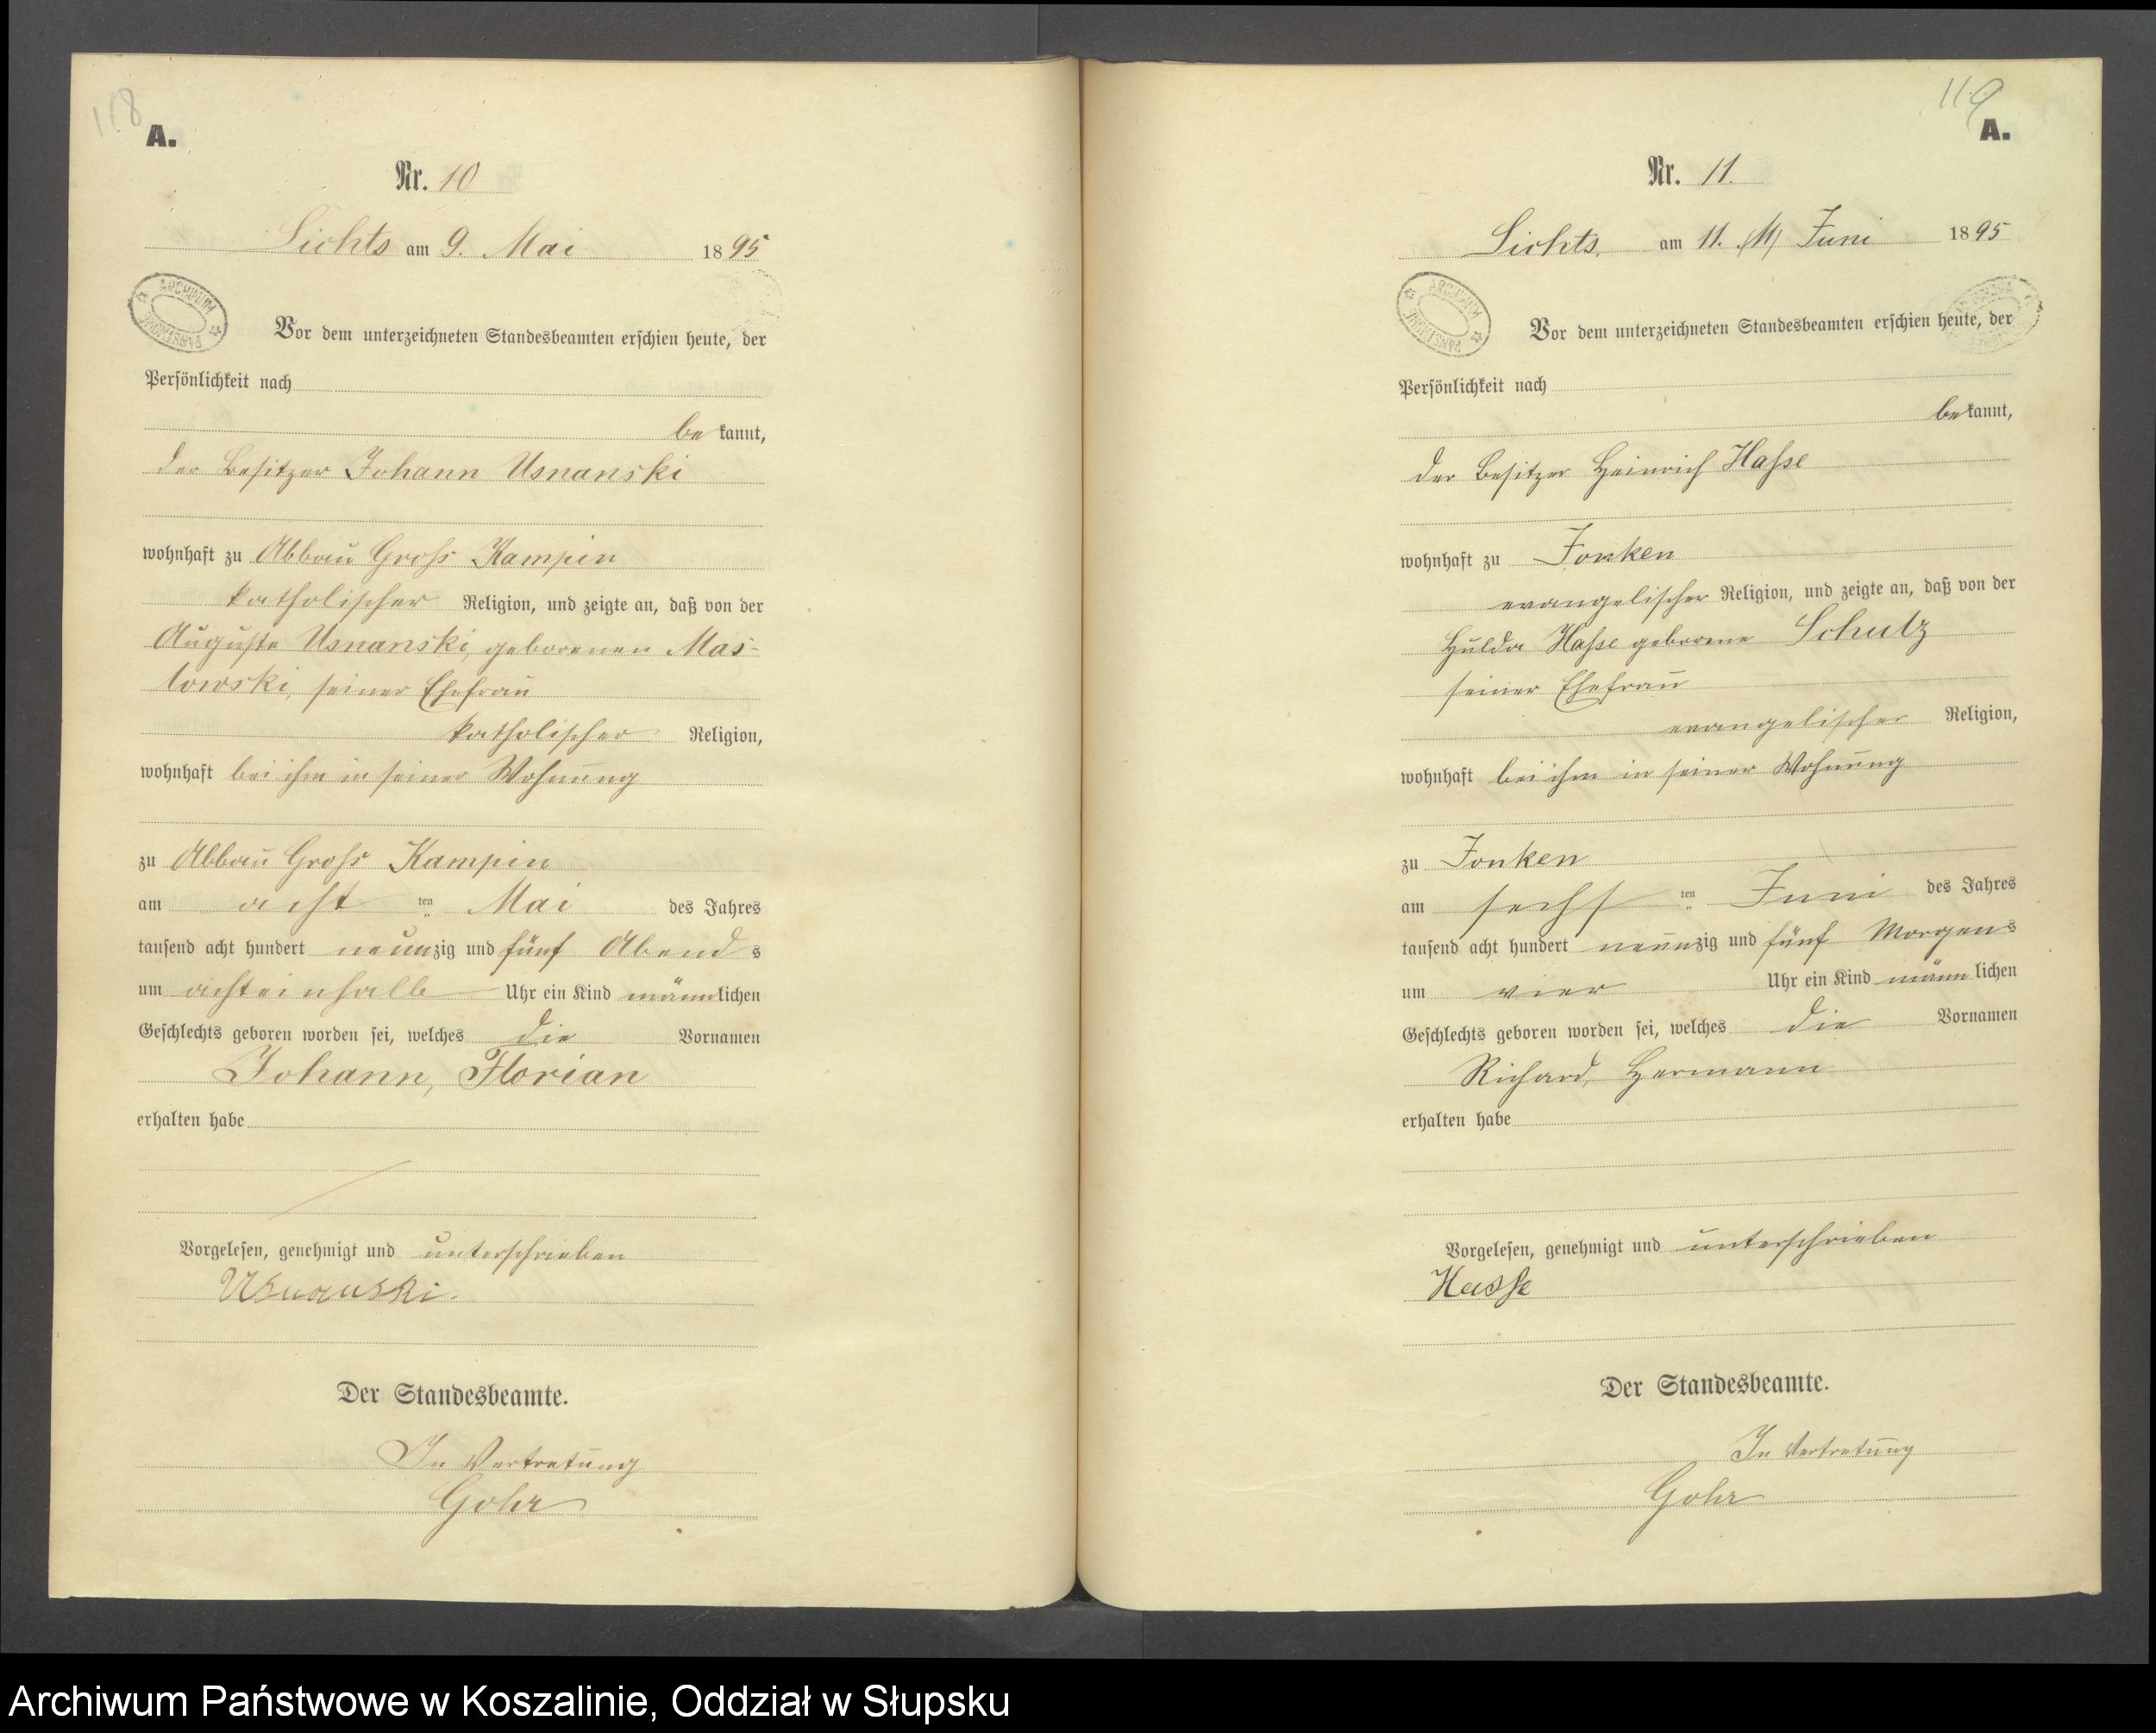 118
A.
Nr. 10
Lichts am 9. Mai 1895
ARCHIWUM PAŃSTWOWE
Vor dem unterzeichneten Standesbeamten erschien heute, der
Persönlichkeit nach
bekannt,
der Besitzer Johann Usnanski
wohnhaft zu Abbau Gross Kampin
katholischer Religion, und zeigte an, daß von der
Auguste Usnanski, geborenen Mas-
lowski, seiner Ehefrau
katholischer Religion,
wohnhaft bei ihm in seiner Wohnung
zu Abbau Gross Kampin
am acht ten Mai des Jahres
tausend acht hundert neunzig und fünf Abends
um achteinhalb Uhr ein Kind männlichen
Geschlechts geboren worden sei, welches die Vornamen
Johann, Florian
erhalten habe
Vorgelesen, genehmigt und unterschrieben
Usnanski.
Der Standesbeamte.
In Vertretung
Gohr
119
A.
Nr. 11.
Lichts, am 11. (11) Juni 1895
ARCHIWUM PAŃSTWOWE
Vor dem unterzeichneten Standesbeamten erschien heute, der
Persönlichkeit nach
bekannt,
der Besitzer Heinrich Hasse
wohnhaft zu Fonken
evangelischer Religion, und zeigte an, daß von der
Hulda Hasse geborene Schulz
seiner Ehefrau
evangelischer Religion,
wohnhaft bei ihm in seiner Wohnung
zu Fonken
am sechs ten Juni des Jahres
tausend acht hundert neunzig und fünf Morgens
um vier Uhr ein Kind männlichen
Geschlechts geboren worden sei, welches die Vornamen
Richard, Hermann
erhalten habe
Vorgelesen, genehmigt und unterschrieben
Hasse
Der Standesbeamte.
In Vertretung
Gohr
Archiwum Państwowe w Koszalinie, Oddział w Słupsku